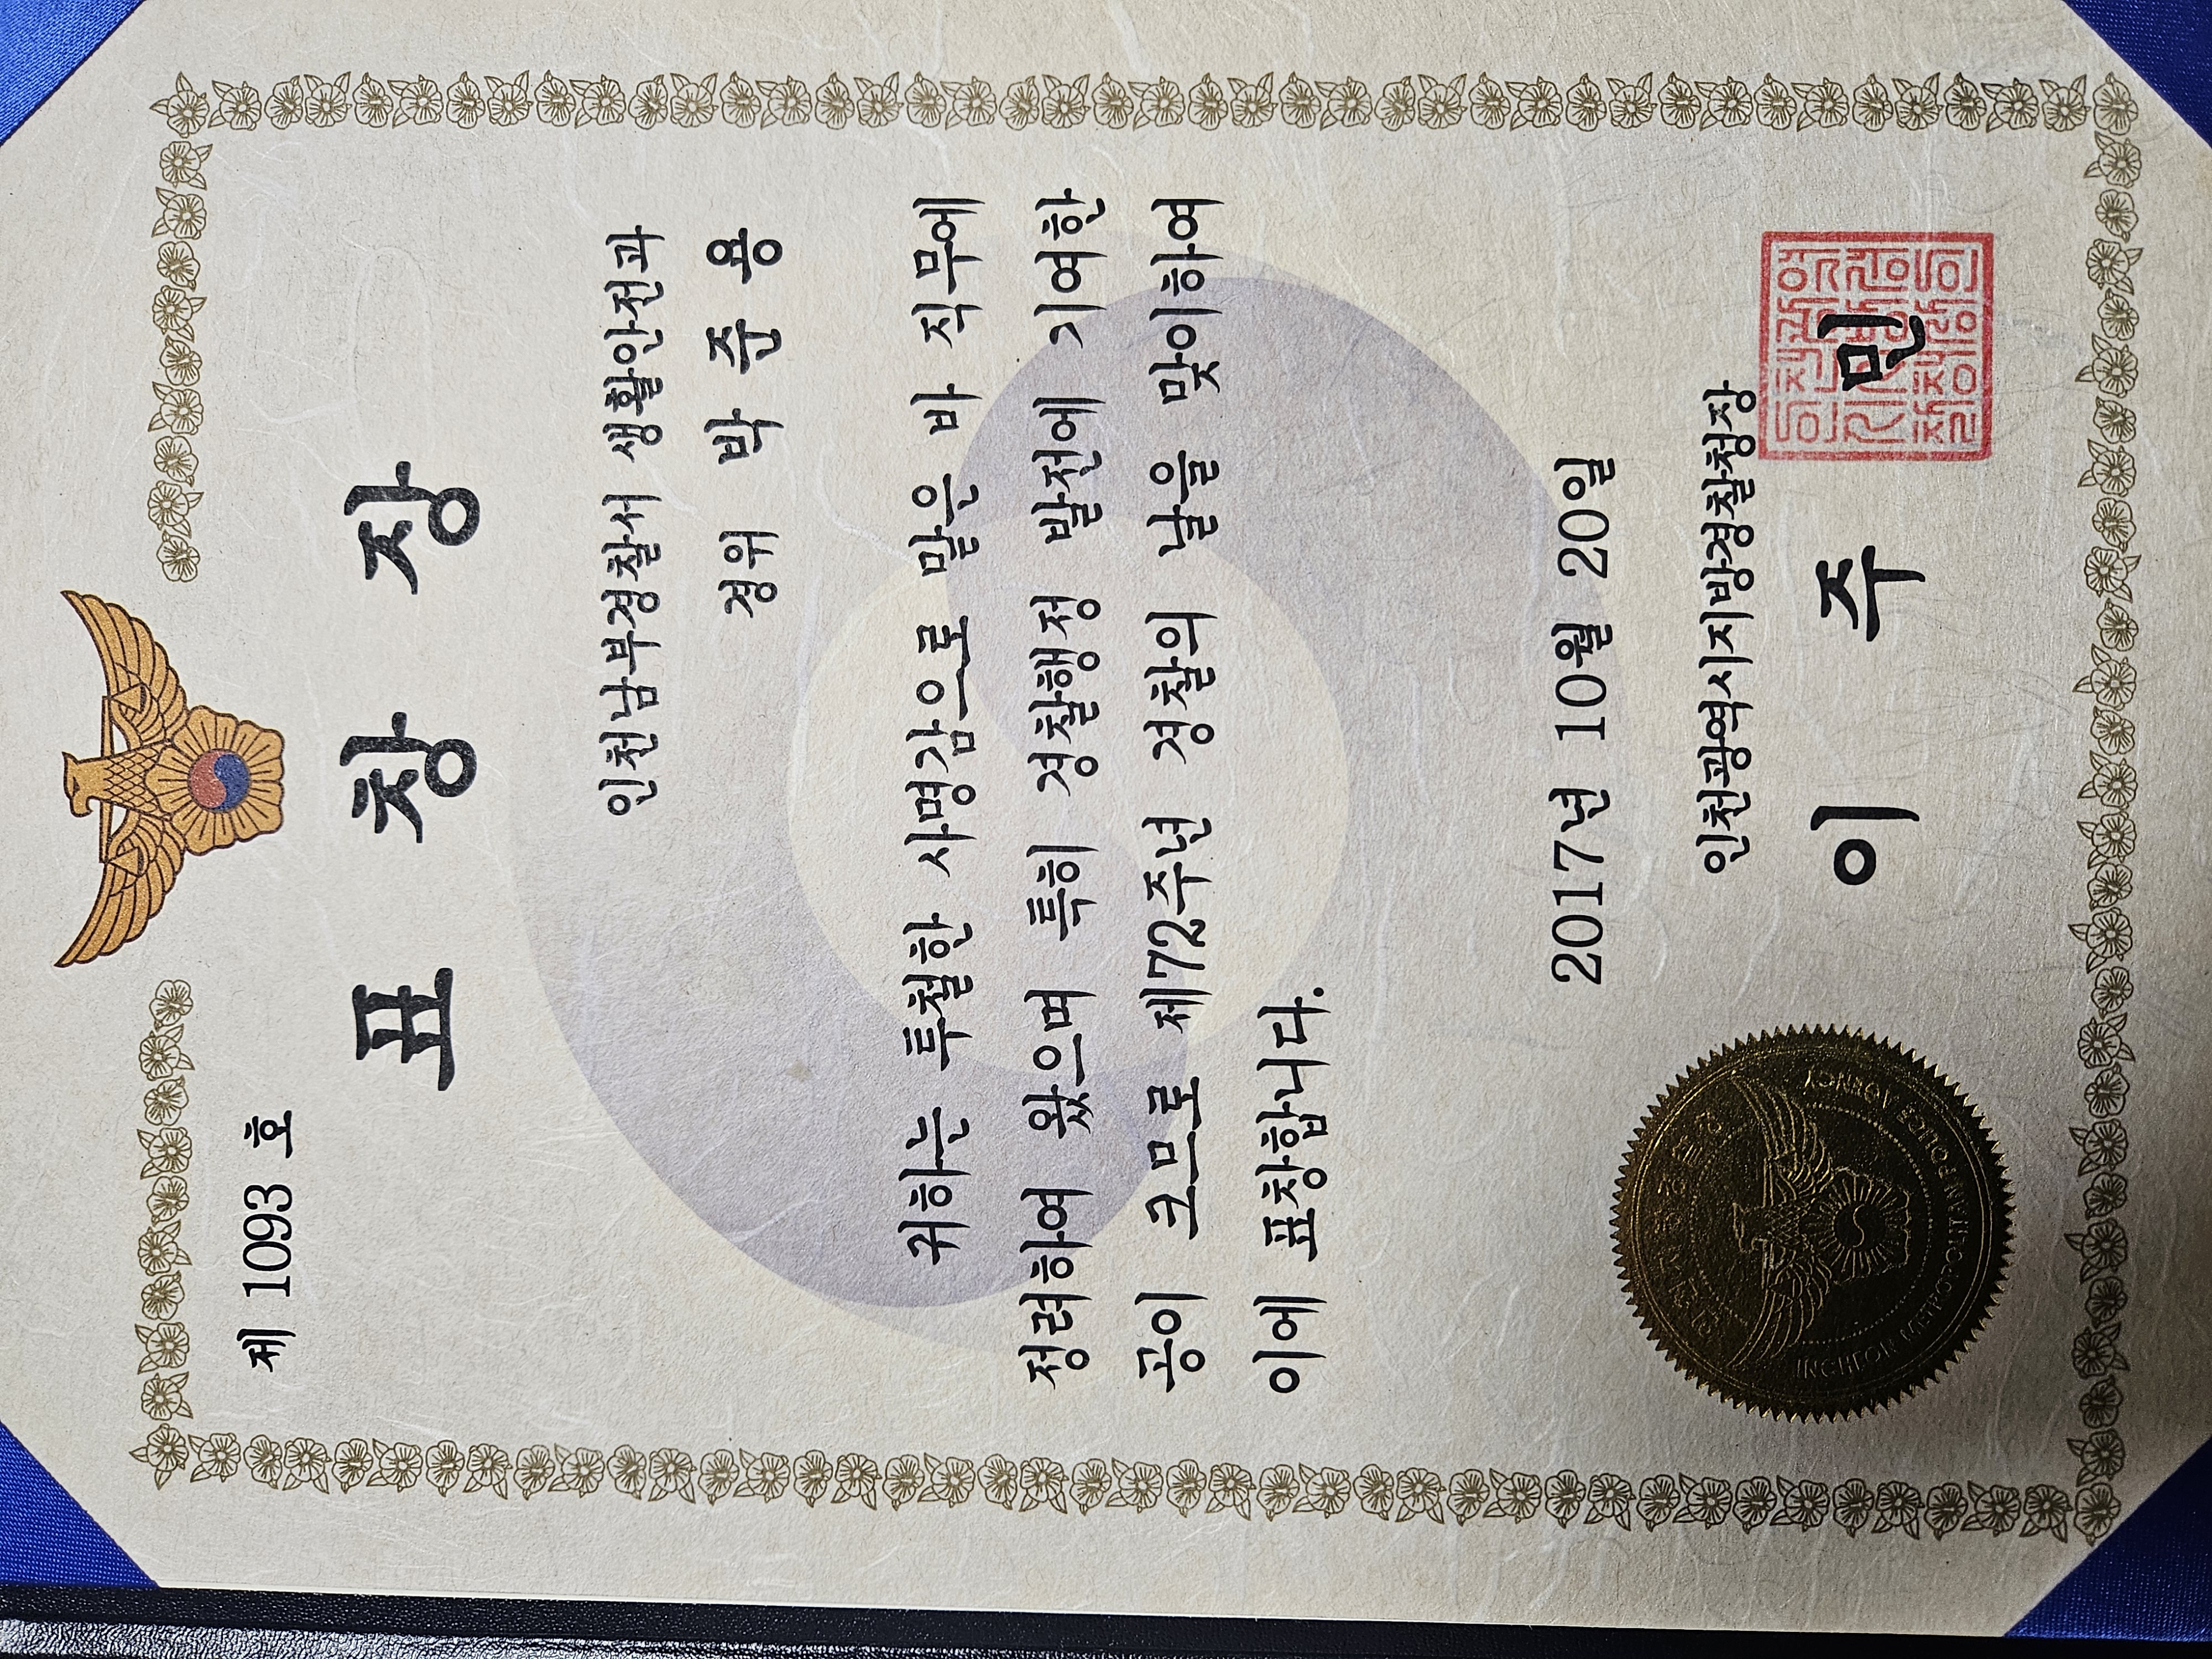 제 1093 호
표 창 장
인천남부경찰서 생활안전과
경위 박 준 용
귀하는 투철한 사명감으로 맡은 바 직무에
정려하여 왔으며 특히 경찰행정 발전에 기여한
공이 크므로 제72주년 경찰의 날을 맞이하여
이에 표창합니다.
2017년 10월 20일
인천광역시지방경찰청장
이 주 민
INCHEON METROPOLITAN POLICE AGENCY